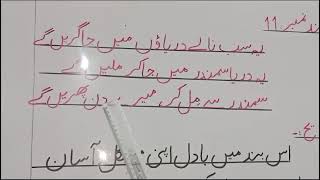 بند نمبر 11
یہ سب نالے دریاؤں میں جا گریں گے
یہ دریا سمندر میں جا کر ملیں گے
سمندر سے مل کر میرے دن پھریں گے
اس بند میں بادل اپنی آسان